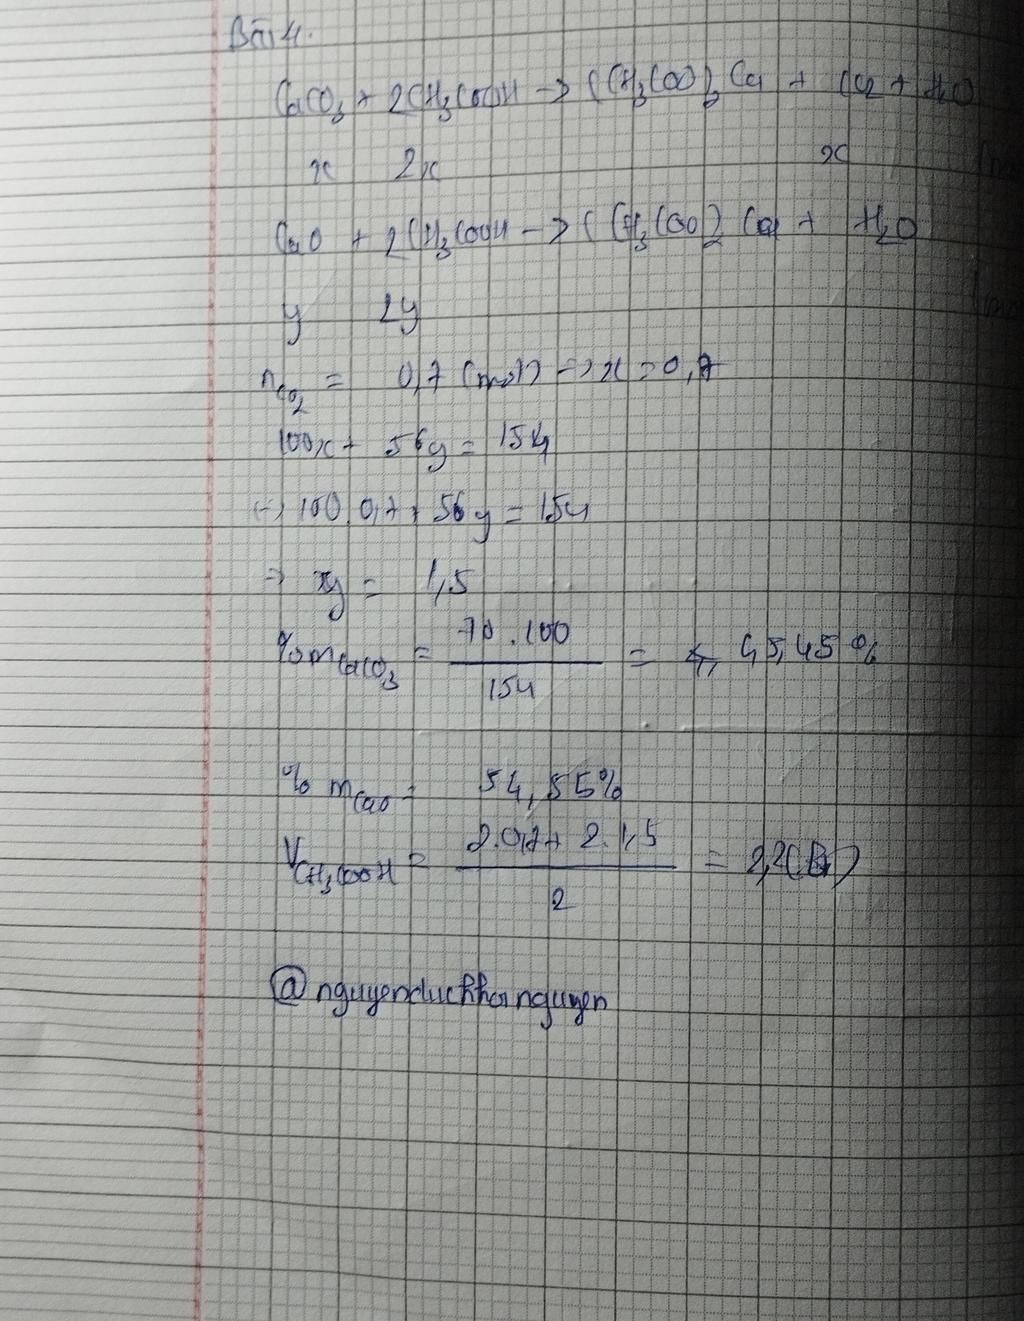 Bài 4.
CaCO3 + 2CH3COOH -> (CH3COO)2 Ca + CO2 + H2O
x 2x x
CaO + 2CH3COOH -> (CH3COO)2 Ca + H2O
y 2y
nCO2 = 0,7 (mol) => x = 0,7
100x + 56y = 154
(-) 100.0,7 + 56y = 154
=> y = 1,5
%mCaCO3 = 70.100 / 154 = 45,45%
% mCaO = 54,55%
VCH3COOH = 2.0,7 + 2.1,5 / 2 = 2,2(lít)
@nguyenduckhoinguyen